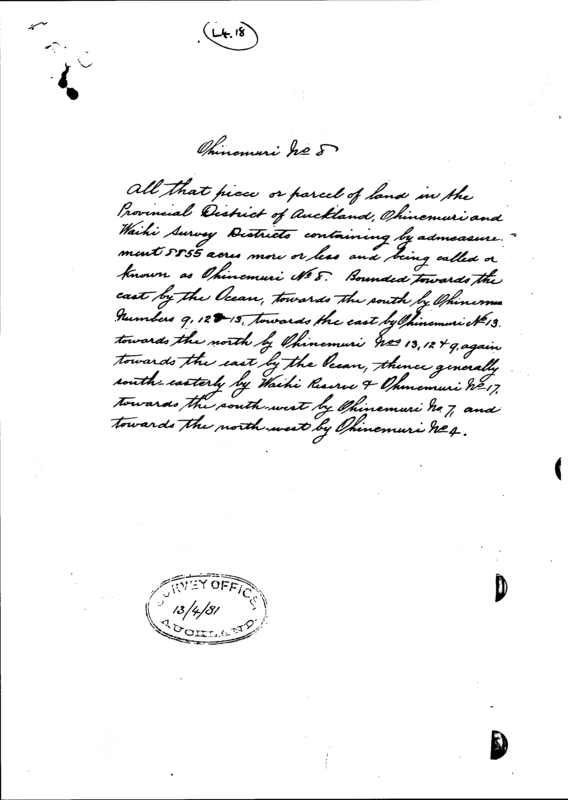 L4.18
Ohinemuri No 8
All that piece or parcel of land in the
Provincial District of Auckland, Ohinemuri and
Waihi Survey Districts containing by admeasure-
ment 5855 acres more or less and being called or
known as Ohinemuri No 8. Bounded towards the
east by the Ocean, towards the south by Ohinemu
Numbers 9, 12 & 13, towards the east by Ohinemuri No 13.
towards the north by Ohinemuri Nos 13, 12 & 9, again
towards the east by the Ocean, thence generally
south-easterly by Waihi Reserve & Ohinemuri No 17,
towards the south-west by Ohinemuri No 7, and
towards the north-west by Ohinemuri No 4.
SURVEY OFFICE,
13/4/81
AUCKLAND.